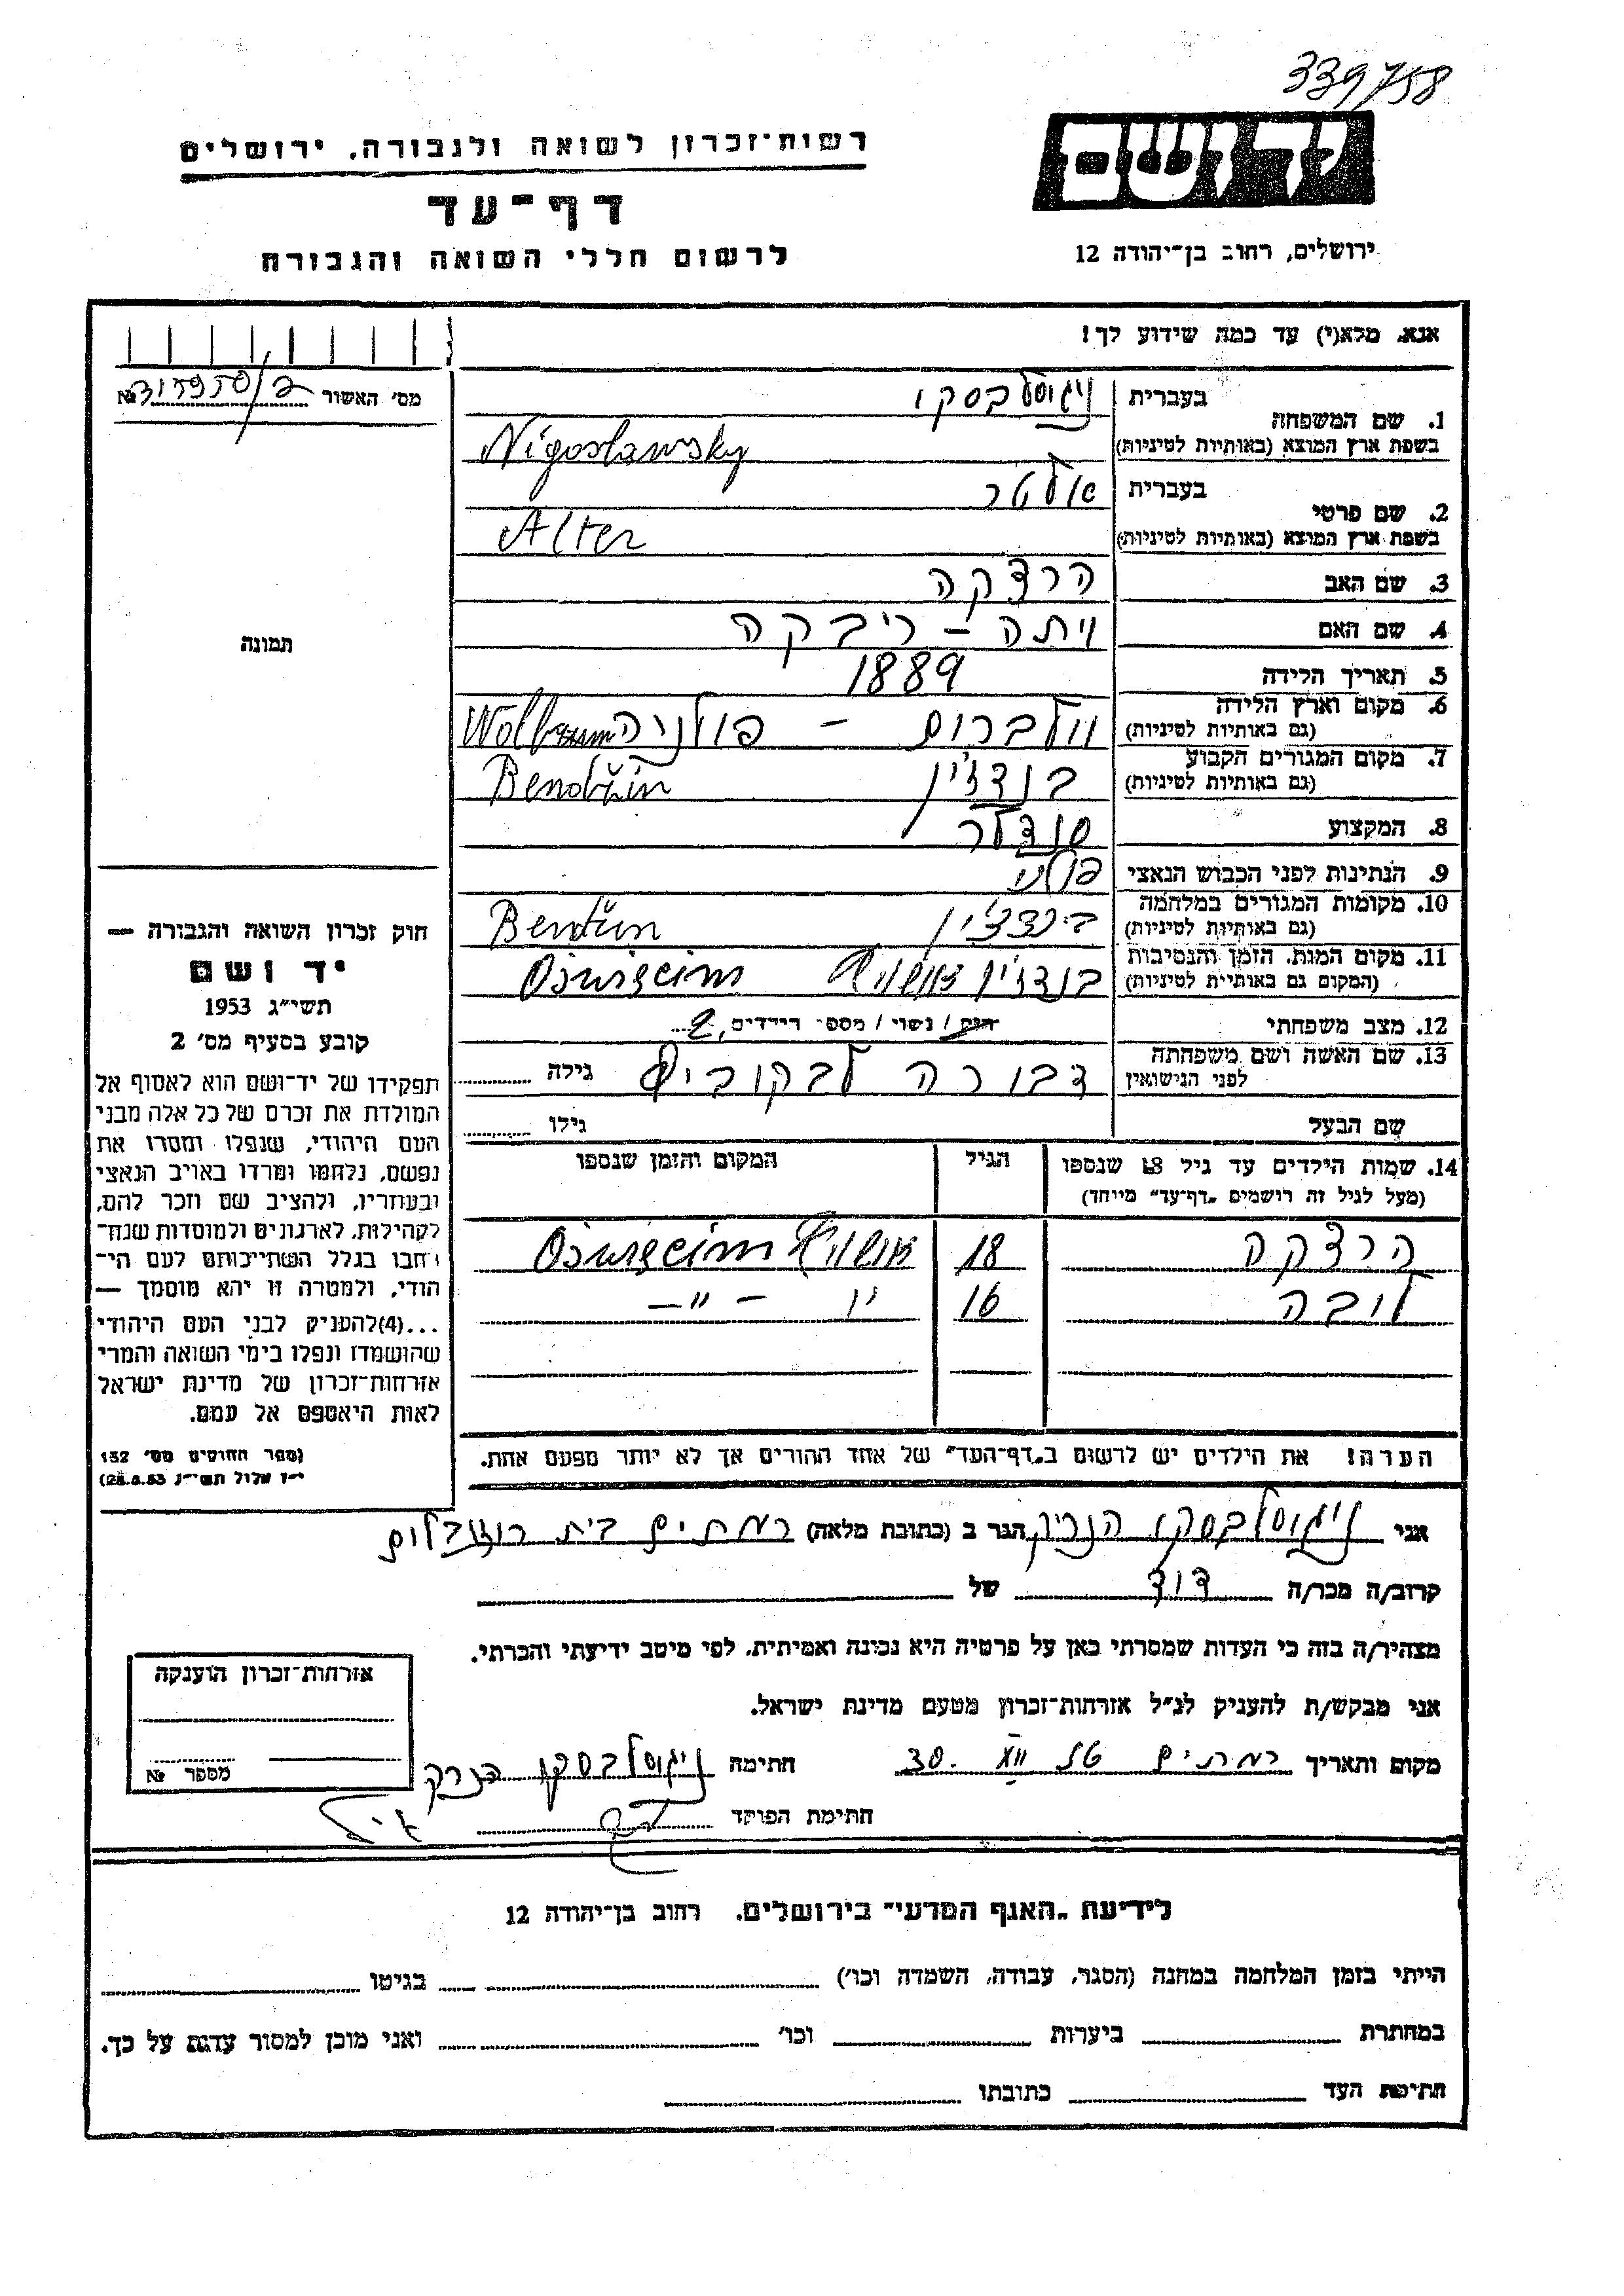 339758
רשות־זכרון לשואה ולגבורה, ירושלים
יד ושם
דף־עד
לרשום חללי השואה והגבורה
ירושלים, רחוב בן־יהודה 12
אנא, מלא(י) עד כמה שידוע לך!
מס׳ האשור №
1. שם המשפחה
בעברית ניגוסלבסקי
בשפת ארץ המוצא (באותיות לטיניות) Nigoslawsky
2. שם פרטי
בעברית אלטר
בשפת ארץ המוצא (באותיות לטיניות) Alter
3. שם האב הרצקה
4. שם האם ויתה - ריבקה
תמונה
5. תאריך הלידה 1889
6. מקום וארץ הלידה
(גם באותיות לטיניות) וולברום - פולניה
7. מקום המגורים הקבוע
(גם באותיות לטיניות) בנדז'ין Bendžin
8. המקצוע סנדלר
9. הנתינות לפני הכבוש הנאצי פולני
10. מקומות המגורים במלחמה
(גם באותיות לטיניות) בינדז'ין
11. מקום המות, הזמן והנסיבות
(המקום גם באותיית לטיניות) בנדז'ין אושויץ Ošwięcim
12. מצב משפחתי רווק / נשוי / מספר הילדים 2
13. שם האשה ושם משפחתה
לפני הנישואין דבורה לבקוביץ גילה
שם הבעל גילו
14. שמות הילדים עד גיל 18 שנספו
(מעל לגיל זה רושמים „דף־עד״ מייחד)
הגיל
המקום והזמן שנספו
הרצקה 18 אושויץ Ošwięcim
ליבה 16 - " -
הערה! את הילדים יש לרשום ב„דף־העד״ של אחד ההורים אך לא יותר מפעם אחת.
חוק זכרון השואה והגבורה —
יד ושם
תשי״ג 1953
קובע בסעיף מס׳ 2
תפקידו של יד־ושם הוא לאסוף אל
המולדת את זכרם של כל אלה מבני
העם היהודי, שנפלו ומסרו את
נפשם, נלחמו ומרדו באויב הנאצי
ובעוזריו, ולהציב שם וזכר להם,
לקהילות, לארגונים ולמוסדות שנח־
רבו בגלל השתייכותם לעם הי־
הודי, ולמטרה זו יהא מוסמך —
...(4) להעניק לבני העם היהודי
שהושמדו ונפלו בימי השואה והמרי
אזרחות־זכרון של מדינת ישראל
לאות היאספם אל עמם.
(ספר החוקים מס׳ 132
י״ז אלול תשי״ג 28.8.53)
אני ניגוסלבסקי הנריק הגר ב (כתובת מלאה) רמתים בית
קרוב/ה מכר/ה דוד של
מצהיר/ה בזה כי העדות שמסרתי כאן על פרטיה היא נכונה ואמיתית, לפי מיטב ידיעתי והכרתי.
אני מבקש/ת להעניק לנ״ל אזרחות־זכרון מטעם מדינת ישראל.
מקום ותאריך רמתים 30. חתימה ניגוסלבסקי הנריק
חתימת הפוקד
אזרחות־זכרון הוענקה
מספר №
לידיעת „האגף המדעי״ בירושלים, רחוב בן־יהודה 12
הייתי בזמן המלחמה במחנה (הסגר, עבודה, השמדה וכו׳) בגיטו
במחתרת ביערות וכו׳ ואני מוכן למסור עדות על כך.
חתימת העד כתובתו